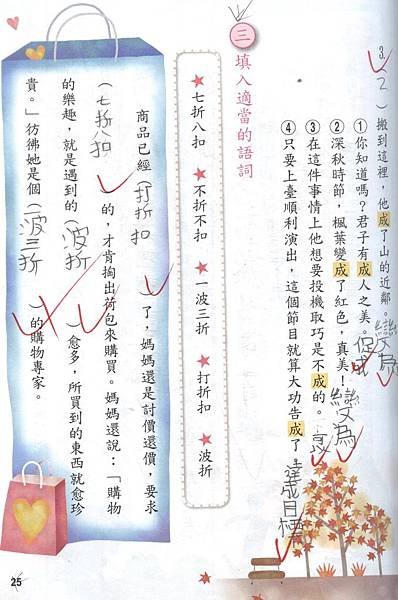 3.
（2）搬到這裡，他成了山的近鄰。變為
①你知道嗎？君子有成人之美。促成
②深秋時節，楓葉變成了紅色，真美！變為
③在這件事情上他想要投機取巧是不成的。可以
④只要上臺順利演出，這個節目就算大功告成了。達成目標
三 填入適當的語詞
★七折八扣 ★不折不扣 ★一波三折 ★打折扣 ★波折
商品已經（打折扣）了，媽媽還是討價還價，要求
（七折八扣）的，才肯掏出荷包來購買。媽媽還說：「購物
的樂趣，就是遇到的（波折）愈多，所買到的東西就愈珍
貴。」彷彿她是個（波三折）的購物專家。
25